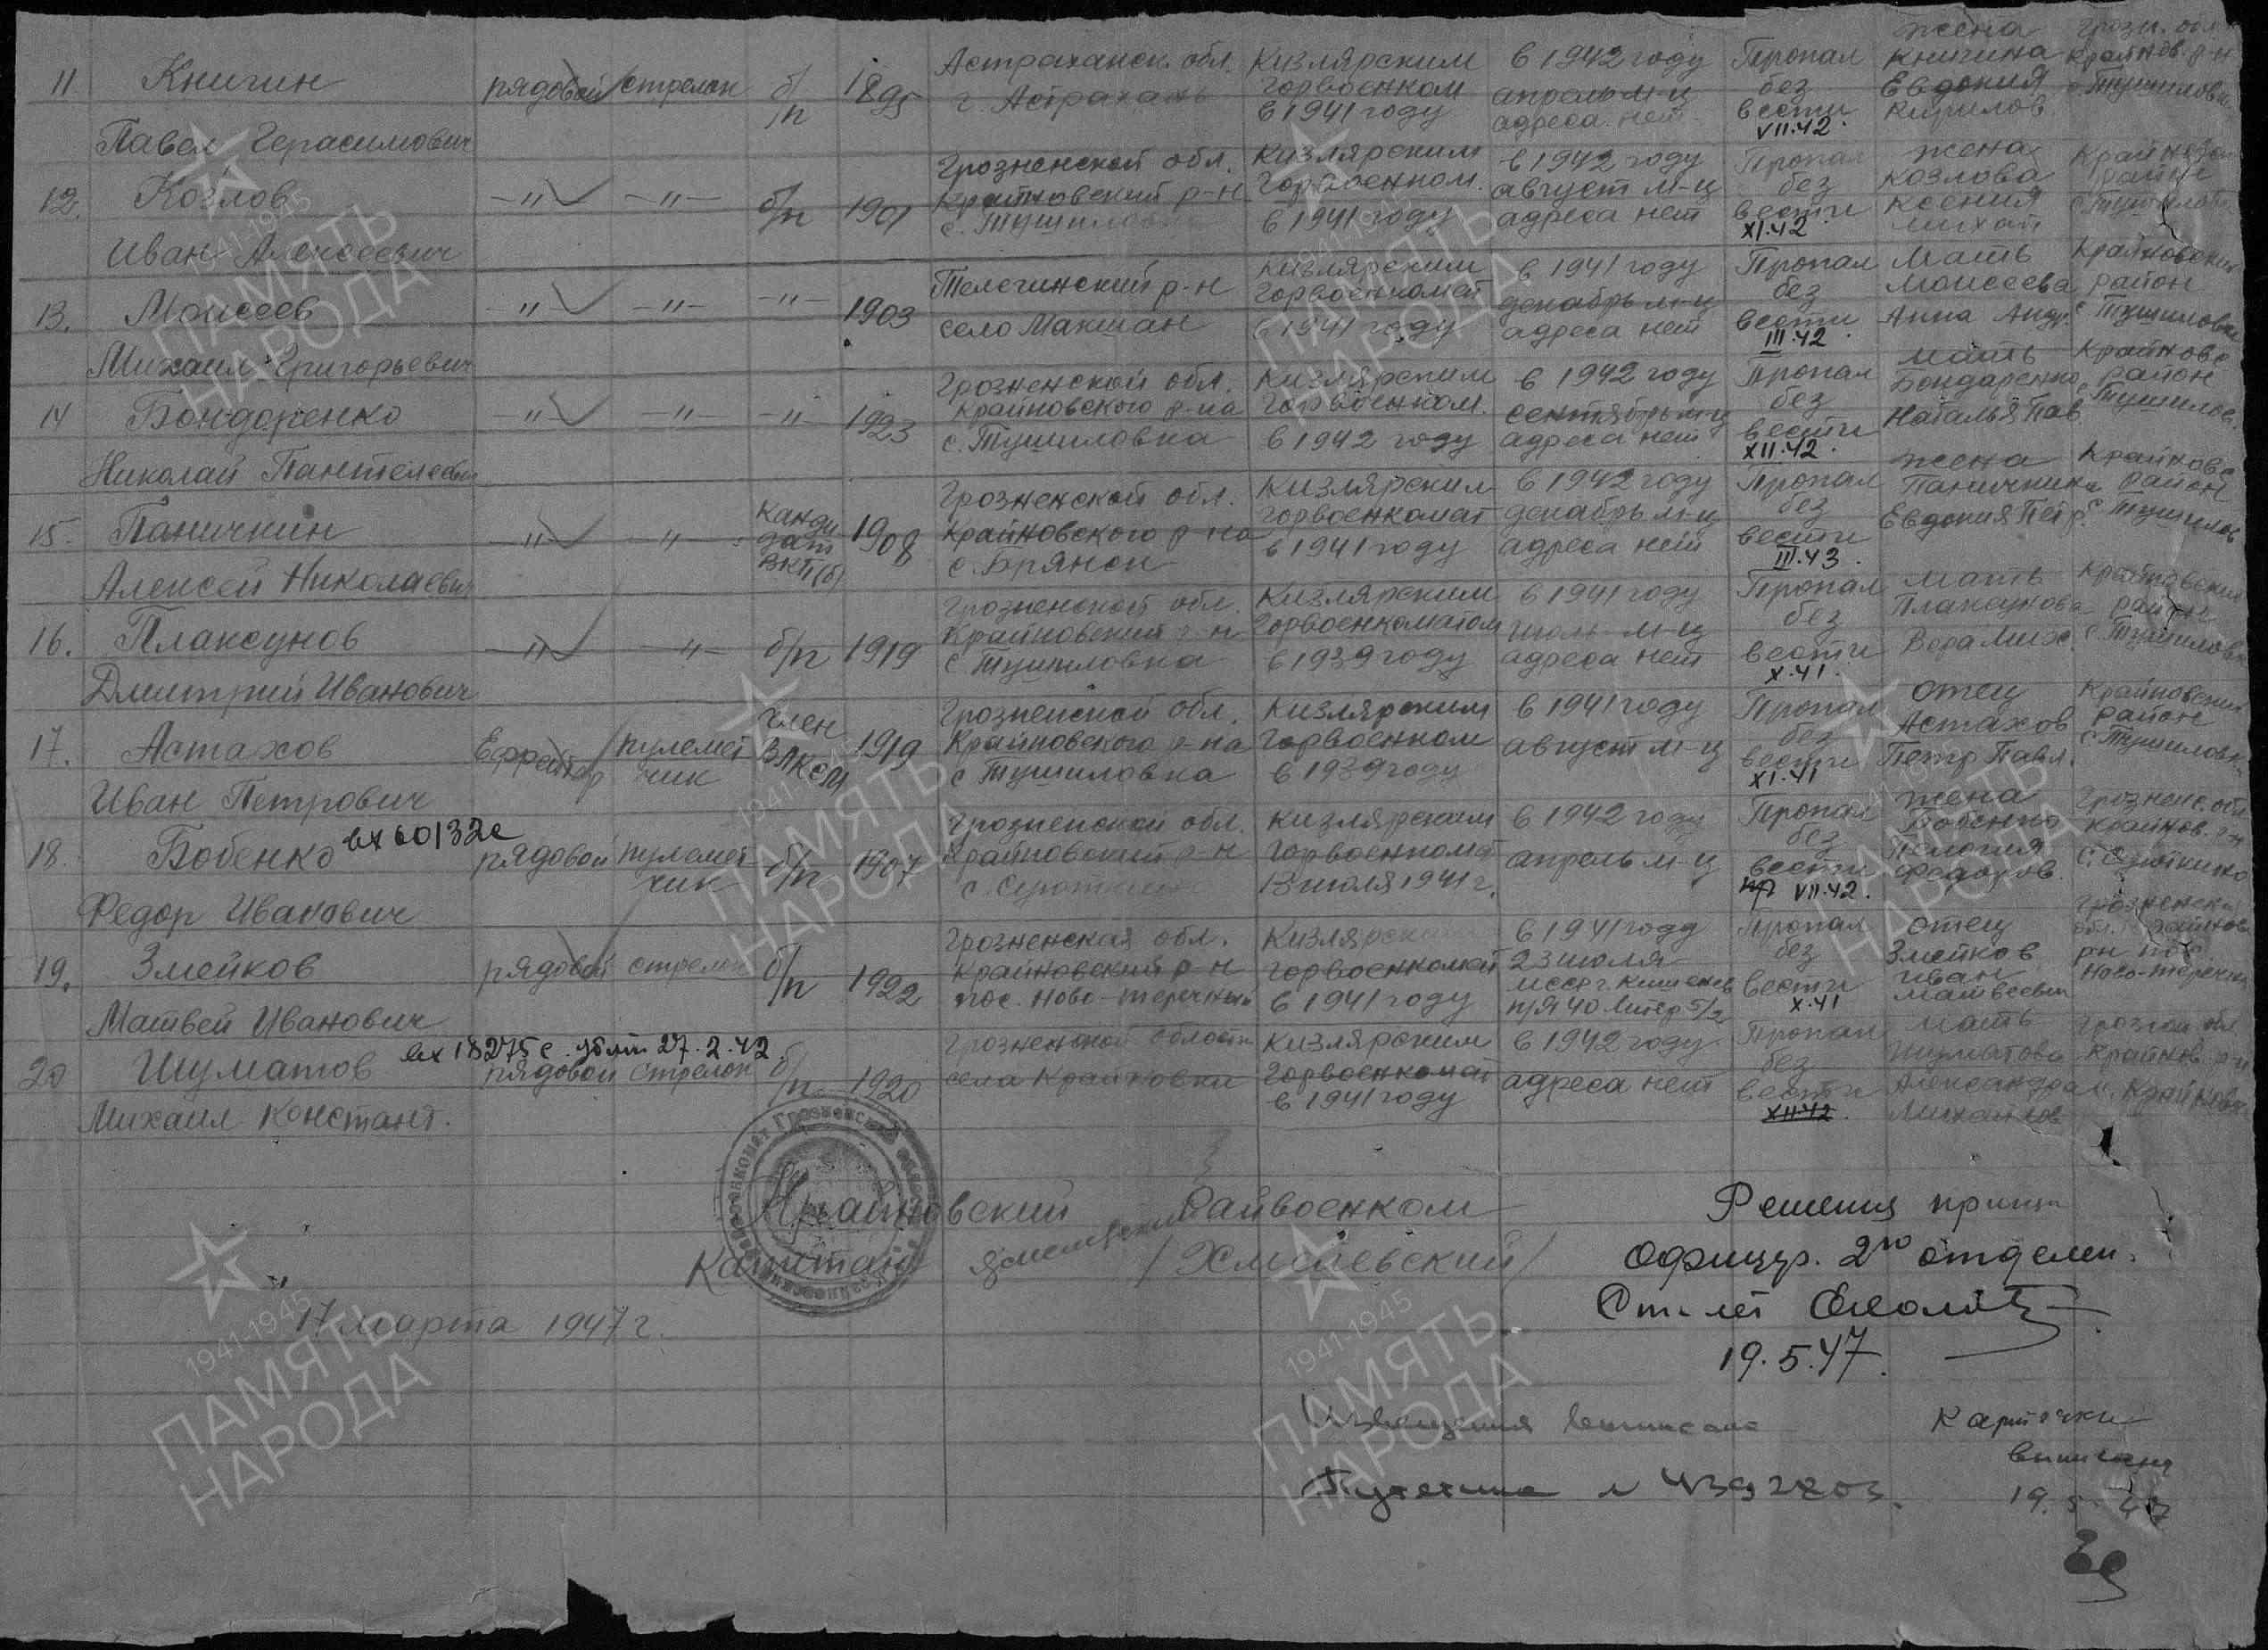 11 Книгин рядовой стрелок б/п 1895 Астраханск. обл. Кизлярским в 1942 году Пропал жена Грозн. обл.
Павел Герасимович г. Астрахань горвоенком апрель м-ц без Книгина Крайнов. р-н
в 1941 году адреса нет вести Евдокия с Тушиловка
VII.42. Кирилов.
12. Козлов —"— —"— б/п 1901 Грозненской обл. Кизлярским в 1942 году Пропал жена
Иван Алексеевич Крайновский р-н горвоенком. август м-ц без Козлова район
с. Тушиловка в 1941 году адреса нет вести Ксения
XI.42 Михай
13. Моисеев —"— —"— —"— 1903 Телегинский р-н Кизлярским в 1941 году Пропал Мать Крайновский
Михаил Григорьевич село Макшан горвоенкомат декабрь м-ц без Моисеева район
в 1941 году адреса нет вести Анна Анд. с Тушиловка
III.42.
14 Бондаренко —"— —"— —"— 1923 Грозненской обл. Кизлярским в 1942 году Пропал мать Крайнов
Николай Пантелеевич Крайновского р-на горвоенком. сентябрь м-ц без Бондаренко район
с. Тушиловка в 1942 году адреса нет вести Наталья Пав. Тушилов.
XII.42.
15. Паничкин —"— —"— Кандидат ВКП(б) 1908 Грозненской обл. Кизлярским в 1942 году Пропал жена Крайнов
Алексей Николаевич Крайновского р-на горвоенкомат декабрь м-ц без Паничкина район
с. Брянск в 1941 году адреса нет вести Евдокия Петр. с Тушилов
III.43.
16. Плаксунов —"— —"— б/п 1919 Грозненской обл. Кизлярским в 1941 году Пропал мать Крайновский
Дмитрий Иванович Крайновский р-н горвоенкоматом июль м-ц без Плаксунова район
с Тушиловка в 1939 году адреса нет вести Вера Мих. с. Тушиловка
X.41.
17. Астахов Ефрейтор пулеметчик член ВЛКСМ 1919 Грозненской обл. Кизлярским в 1941 году Пропал отец Крайновский
Иван Петрович Крайновского р-на горвоенком август м-ц без Астахов район
с Тушиловка в 1939 году вести Петр Павл. с Тушиловка
XI.41
18. Бобенко вх 60132с рядовой пулеметчик б/п 1907 Грозненской обл. Кизлярским в 1942 году Пропал жена Грозненс. обл
Федор Иванович Крайновский р-н горвоенкомат апрель м-ц без Бобенко Крайнов. р-н
13 июля 1941 г. вести Пелагия
VII.42. Федоров.
19. Змейков рядовой стрелок б/п 1922 Грозненская обл. Кизлярским в 1941 году Пропал отец Грозненская
Матвей Иванович Крайновский р-н горвоенкомат 23 июля без Змейков
пос. Ново-теречный в 1941 году МССР г. Кишенев вести Иван Ново-теречн
п/я 40 Литер 5/2 X.41 Матвеевич
20 Шуматов вх 18275с. убит 27.2.42. рядовой стрелок б/п 1920 Грозненской области Кизлярским в 1942 году Пропал мать
Михаил Констант. села Крайновки горвоенкомат адреса нет без Шуматова Крайнов р-н
в 1941 году вести Александра с. Крайновка
XII.42. Михайлов
Крайновский Райвоенком
Капитан /Хмелевский/
17 марта 1947 г.
Решения приня
Офицер. 2го отделен.
19.5.47.
Извещения выписаны
Карточки
выписаны
19.5.47
1941-1945
ПАМЯТЬ
НАРОДА